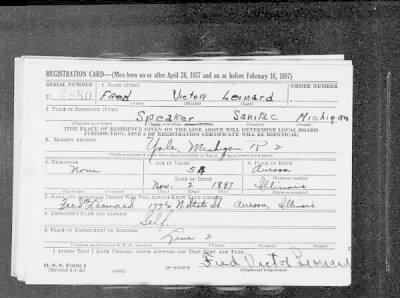 REGISTRATION CARD—(Men born on or after April 28, 1877 and on or before February 16, 1897)
SERIAL NUMBER 1. NAME (Print) ORDER NUMBER
Fred Victor Leonard
(First) (Middle) (Last)
2. PLACE OF RESIDENCE (Print)
Speaker Sanilac Michigan
[THE PLACE OF RESIDENCE GIVEN ON THE LINE ABOVE WILL DETERMINE LOCAL BOARD
JURISDICTION; LINE 2 OF REGISTRATION CERTIFICATE WILL BE IDENTICAL]
3. MAILING ADDRESS
Yale, Michigan R 2
4. TELEPHONE 5. AGE IN YEARS 6. PLACE OF BIRTH
None 54 Aurora
DATE OF BIRTH
Nov. 2 1887 Illinois
7. NAME AND ADDRESS OF PERSON WHO WILL ALWAYS KNOW YOUR ADDRESS
Fred Leonard N. State St Aurora, Illinois
8. EMPLOYER'S NAME AND ADDRESS
Self
9. PLACE OF EMPLOYMENT OR BUSINESS
Line 2
I AFFIRM THAT I HAVE VERIFIED ABOVE ANSWERS AND THAT THEY ARE TRUE.
D. S. S. Form 1
Fred Victor Leonard